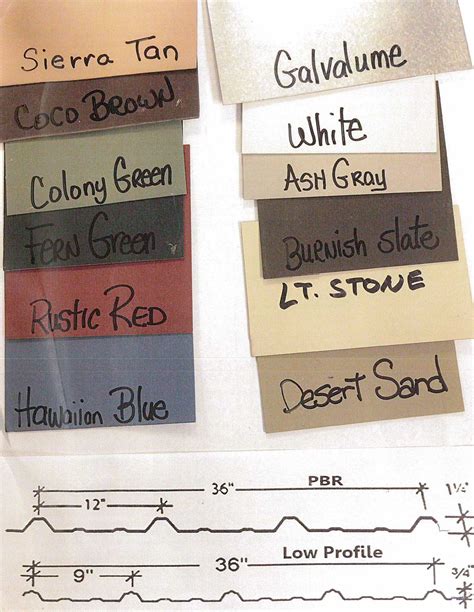 Sierra Tan
COCO BROWN
Colony Green
Fern Green
Rustic Red
Hawaiion Blue
Galvalume
White
Ash Gray
Burnish Slate
LT. STONE
Desert Sand
36" PBR 1½"
12"
36" Low Profile 3/4"
9"